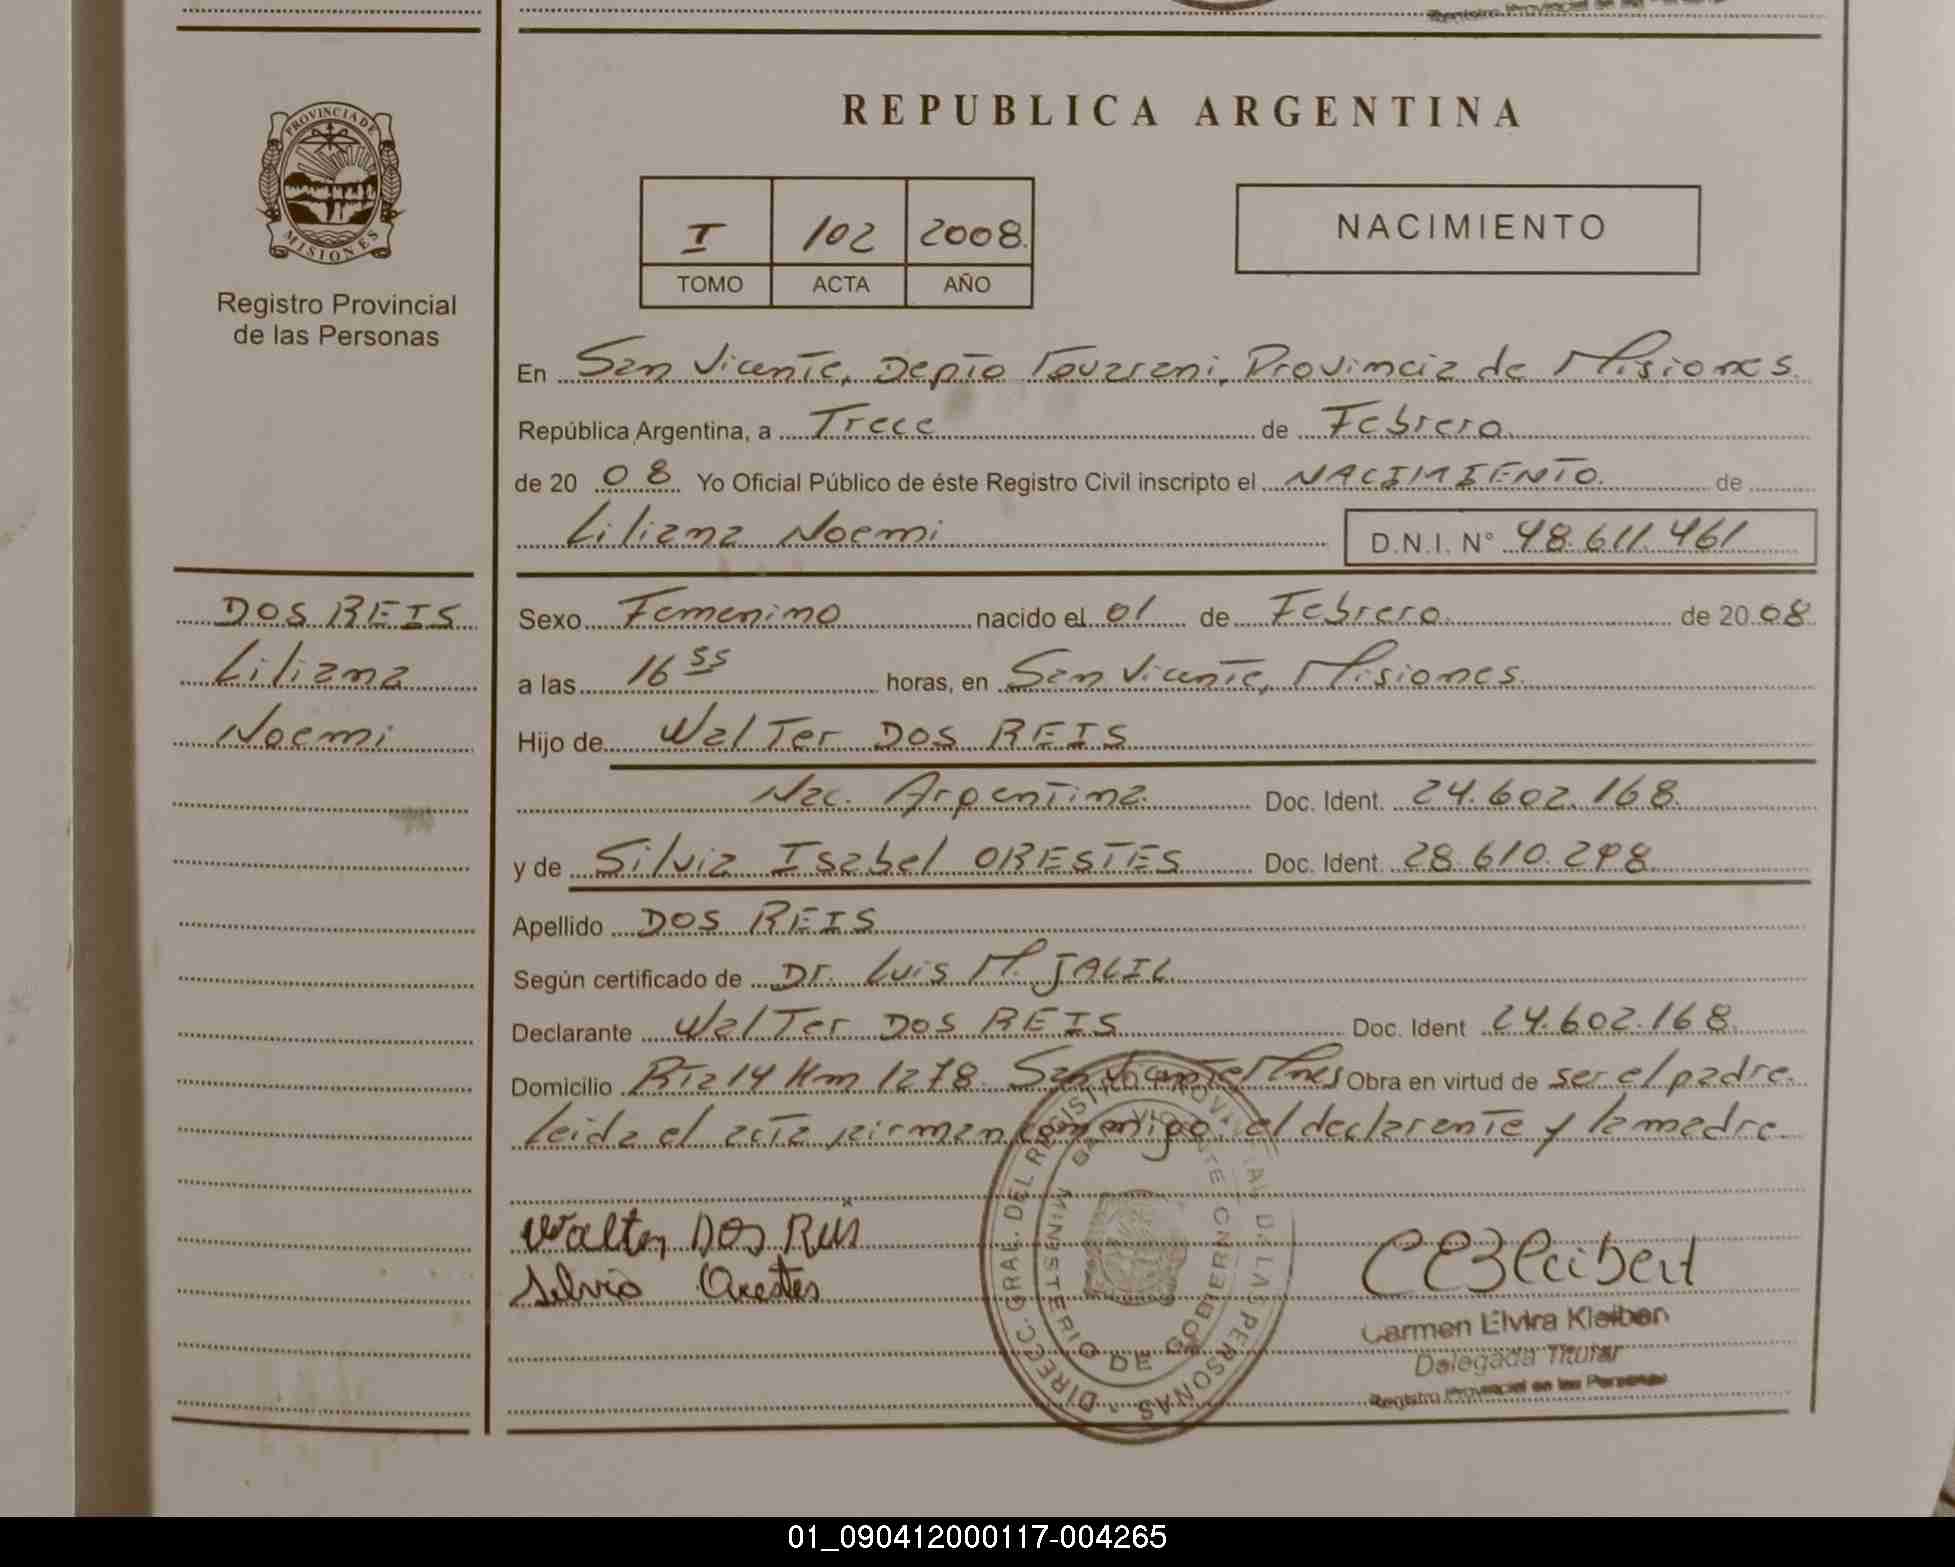 REPUBLICA ARGENTINA
PROVINCIA DE
MISIONES
Registro Provincial
de las Personas
I 102 2008
TOMO ACTA AÑO
NACIMIENTO
En San Vicente, Depto Guarani, Provincia de Misiones.
República Argentina, a Trece de Febrero
de 20 08 Yo Oficial Público de éste Registro Civil inscripto el NACIMIENTO de
Liliana Noemi D.N.I. N° 48.611.461
DOS REIS
Liliana
Noemi
Sexo Femenino nacido el 01 de Febrero de 20 08
a las 16 55 horas, en San Vicente, Misiones.
Hijo de Walter DOS REIS
Nac. Argentina Doc. Ident. 24.602.168
y de Silvia Isabel ORESTES Doc. Ident. 28.610.298
Apellido DOS REIS
Según certificado de Dr. Luis M. JALIL
Declarante Walter DOS REIS Doc. Ident 24.602.168
Domicilio Rta 14 Km 1278 San Vicente Mnes Obra en virtud de ser el padre.
Leida el acta firman conmigo el declarante y la madre
Walter DOS Reis
Silvia Orestes
DIRECC. GRAL. DEL REGISTRO PROVINCIAL DE LAS PERSONAS
MINISTERIO DE GOBIERNO
SAN VICENTE
CEKleibert
Carmen Elvira Kleibert
Delegada Titular
Registro Provincial de las Personas
01_090412000117-004265